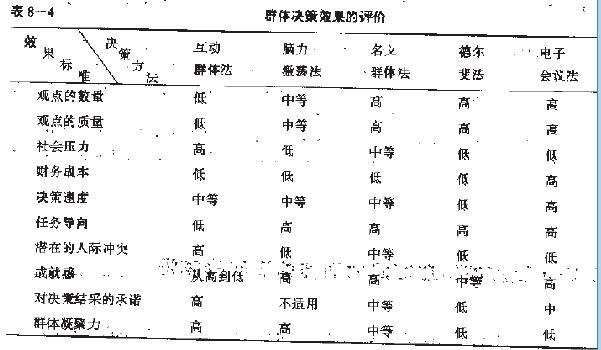 表8—4 群体决策效果的评价
效果标准 决策方法 互动群体法 脑力激荡法 名义群体法 德尔斐法 电子会议法
观点的数量 低 中等 高 高 高
观点的质量 低 中等 高 高 高
社会压力 高 低 中等 低 低
财务成本 低 低 低 低 高
决策速度 中等 中等 中等 低 高
任务导向 低 高 高 高 高
潜在的人际冲突 高 低 中等 低 低
成就感 从高到低 高 高 中等 高
对决策结果的承诺 高 不适用 中等 低 中
群体凝聚力 高 高 中等 低 低